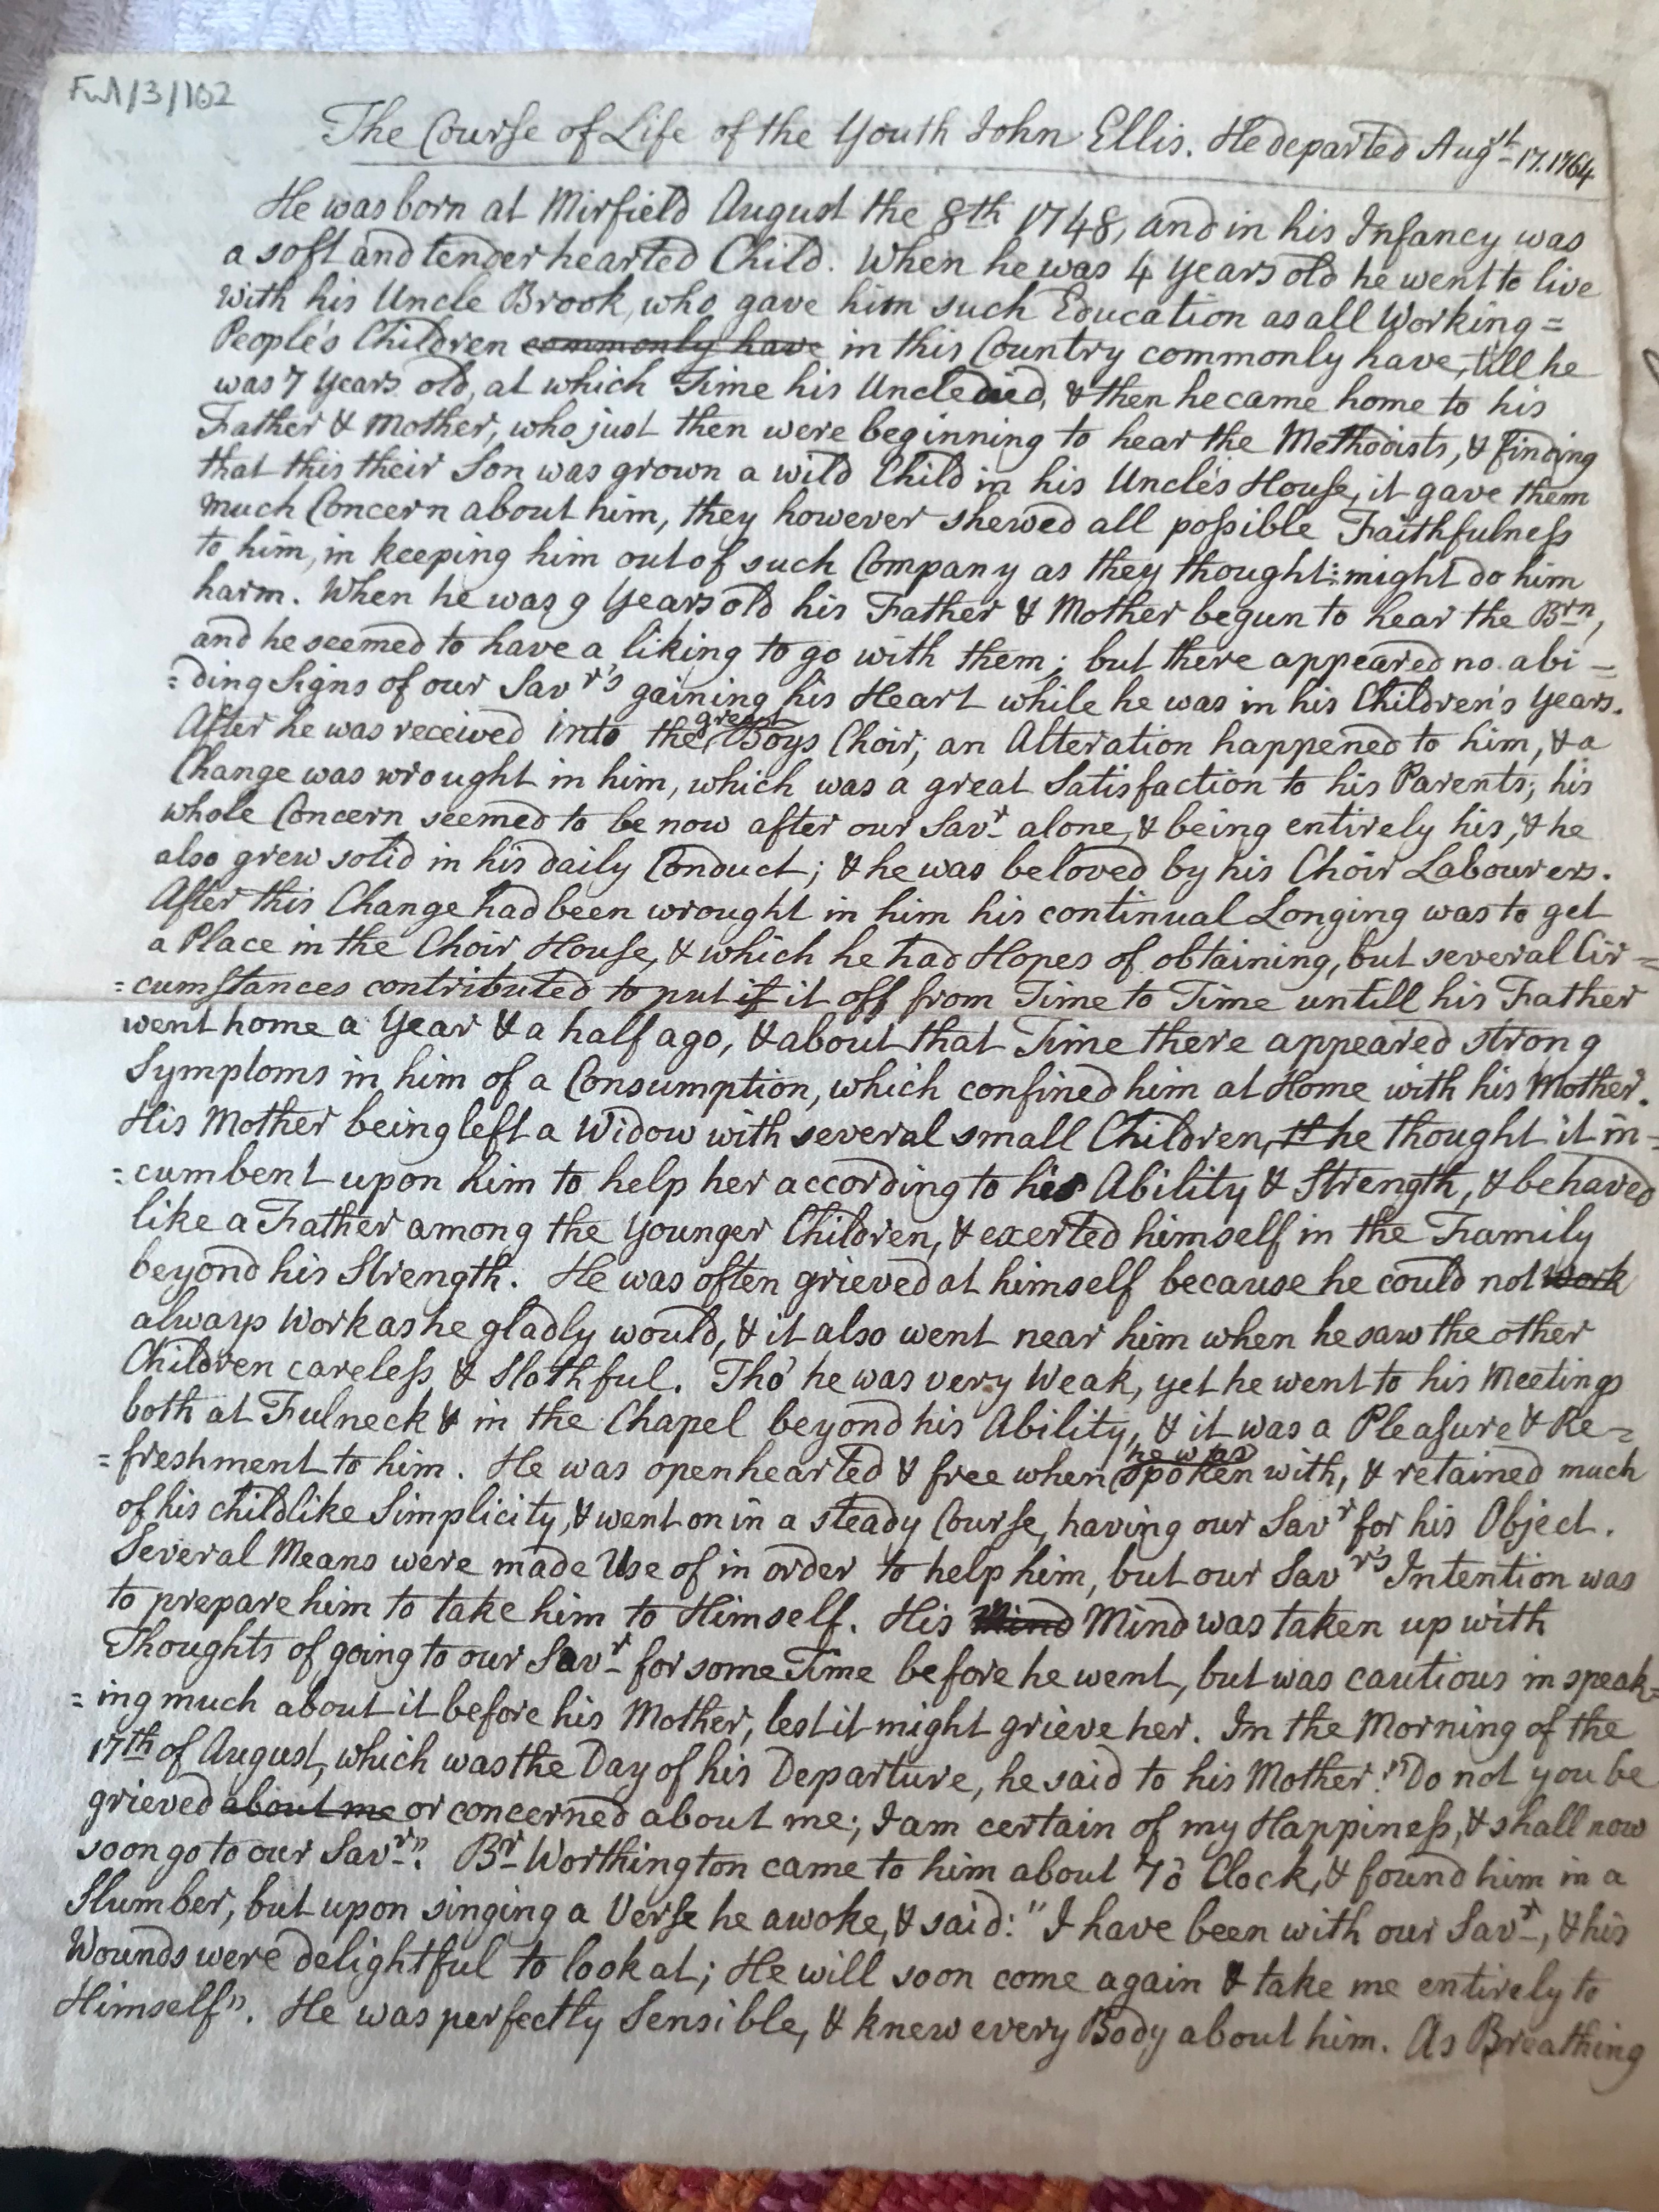 Ful/3/102
The Course of Life of the Youth John Ellis. He departed Augst 17. 1764
He was born at Mirfield August the 8th 1748, and in his Infancy was
a soft and tender hearted Child. When he was 4 Years old he went to live
with his Uncle Brook, who gave him such Education as all Working=
People's Children commonly have in this Country commonly have, till he
was 7 Years old, at which Time his Uncle died, & then he came home to his
Father & Mother, who just then were beginning to hear the Methodists, & finding
that this their Son was grown a wild Child in his Uncle's House, it gave them
much Concern about him, they however shewed all possible Faithfulness
to him, in keeping him out of such Company as they thought might do him
harm. When he was 9 Years old his Father & Mother begun to hear the Brn,
and he seemed to have a liking to go with them; but there appeared no abi=
=ding Signs of our Savr's gaining his Heart while he was in his Children's Years.
After he was received into the great Boys Choir, an Alteration happened to him, & a
Change was wrought in him, which was a great Satisfaction to his Parents; his
whole Concern seemed to be now after our Savr alone, & being entirely his, & he
also grew solid in his daily Conduct; & he was beloved by his Choir Labourers.
After this Change had been wrought in him his continual Longing was to get
a Place in the Choir House, & which he had Hopes of obtaining, but several Cir=
=cumstances contributed to put if it off from Time to Time untill his Father
went home a Year & a half ago, & about that Time there appeared strong
Symptoms in him of a Consumption, which confined him at Home with his Mother.
His Mother being left a Widow with several small Children, he thought it in=
=cumbent upon him to help her according to his Ability & Strength, & behaved
like a Father among the Younger Children, & exerted himself in the Family
beyond his Strength. He was often grieved at himself because he could not work
always Work as he gladly would, & it also went near him when he saw the other
Children careless & Slothful. Tho' he was very Weak, yet he went to his Meetings
both at Fulneck & in the Chapel beyond his Ability, & it was a Pleasure & Re=
=freshment to him. He was openhearted & free when he was spoken with, & retained much
of his childlike Simplicity, & went on in a steady Course, having our Savr for his Object.
Several Means were made Use of in order to help him, but our Savr's Intention was
to prepare him to take him to Himself. His Mind Mind was taken up with
Thoughts of going to our Savr for some Time before he went, but was cautious in speak=
=ing much about it before his Mother, lest it might grieve her. In the Morning of the
17th of August, which was the Day of his Departure, he said to his Mother: "Do not you be
grieved about me or concerned about me; I am certain of my Happiness, & shall now
soon go to our Savr". Br Worthington came to him about 7 o Clock, & found him in a
Slumber, but upon singing a Verse he awoke, & said: "I have been with our Savr, & his
Wounds were delightful to look at; He will soon come again & take me entirely to
Himself". He was perfectly Sensible, & knew every Body about him. As Breathing